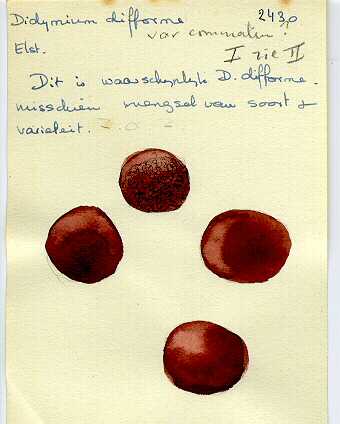 Didymium difforme 2430
var comatum?
Elst. I zie II
Dit is waarschynlyk D. difforme.
misschien mengsel van soort &
varieteit.